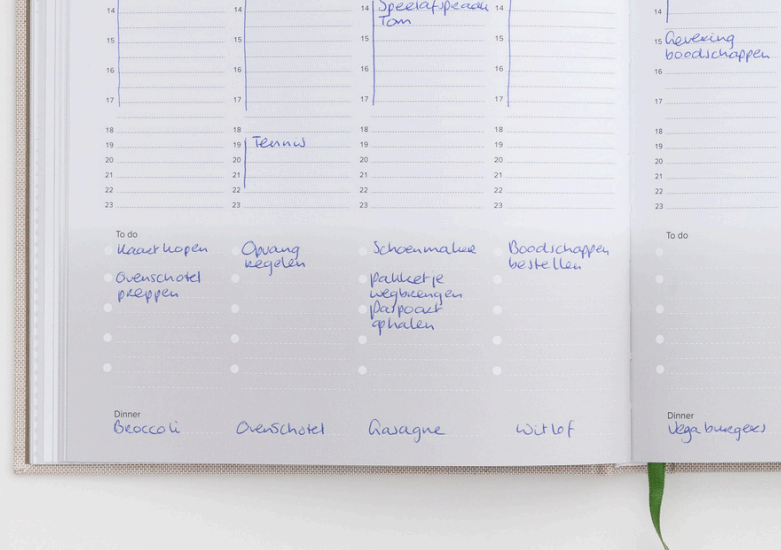 14
15
16
17
18
19
20
21
22
23
To do
Kaart kopen
Ovenschotel
preppen
Dinner
Broccoli
14
15
16
17
18
19 Tennis
20
21
22
23
Opvang
regelen
Ovenschotel
14 Speelafspraak
Tom
15
16
17
18
19
20
21
22
23
Schoenmaker
pakketje
wegbrengen
paspoort
ophalen
Lasagne
14
15
16
17
18
19
20
21
22
23
Boodschappen
bestellen
Witlof
14
15 Levering
boodschappen
16
17
18
19
20
21
22
23
To do
Dinner
Vegaburgers